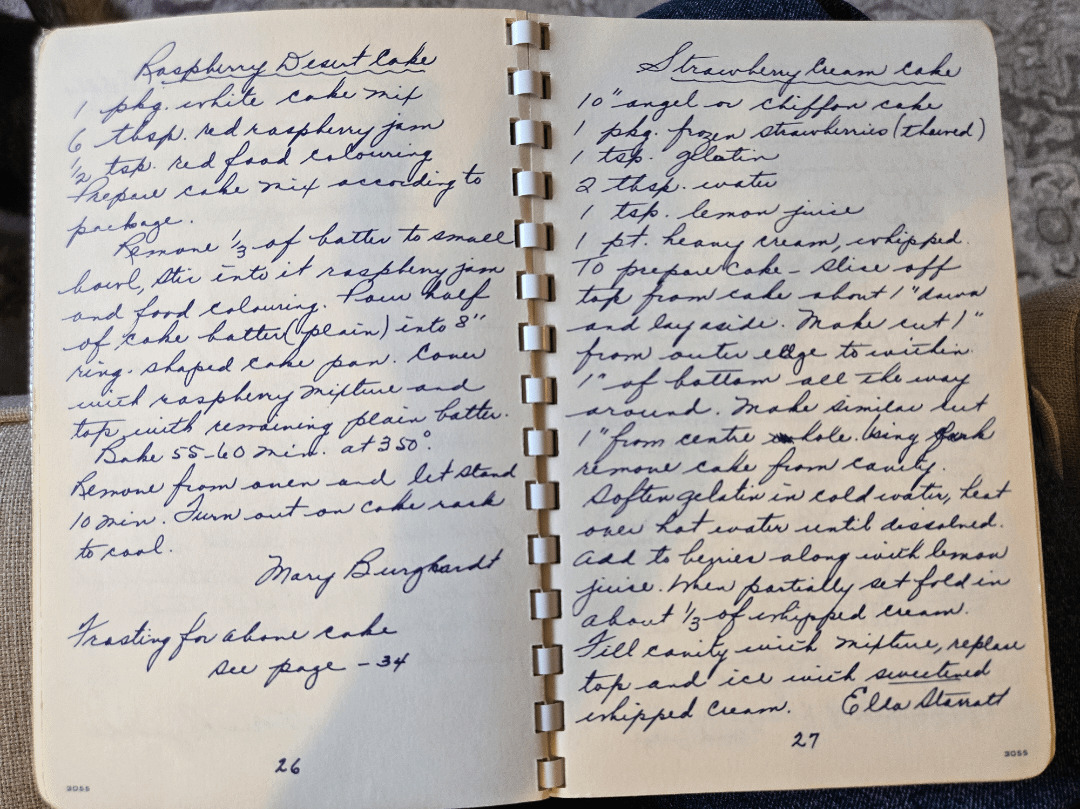 Raspberry Desert Cake
1 pkg. white cake mix
6 tbsp. red raspberry jam
1/2 tsp. red food colouring
Prepare cake mix according to
package.
Remove 1/3 of batter to small
bowl, stir into it raspberry jam
and food colouring. Pour half
of cake batter (plain) into 8"
ring-shaped cake pan. Cover
with raspberry mixture and
top with remaining plain batter.
Bake 55-60 min. at 350°.
Remove from oven and let stand
10 min. Turn out on cake rack
to cool.
Mary Burghardt
Frosting for above cake
see page - 34
26
3055
Strawberry Cream Cake
10" angel or chiffon cake
1 pkg. frozen strawberries (thawed)
1 tsp. gelatin
2 tbsp. water
1 tsp. lemon juice
1 pt. heavy cream, whipped.
To prepare cake - slice off
top from cake about 1" down
and lay aside. Make cut 1"
from outer edge to within
1" of bottom all the way
around. Make similar cut
1" from centre hole. Using fork
remove cake from cavity.
Soften gelatin in cold water, heat
over hot water until dissolved.
Add to berries along with lemon
juice. When partially set fold in
about 1/3 of whipped cream.
Fill cavity with mixture, replace
top and ice with sweetened
whipped cream. Ella Starratt
27
3055